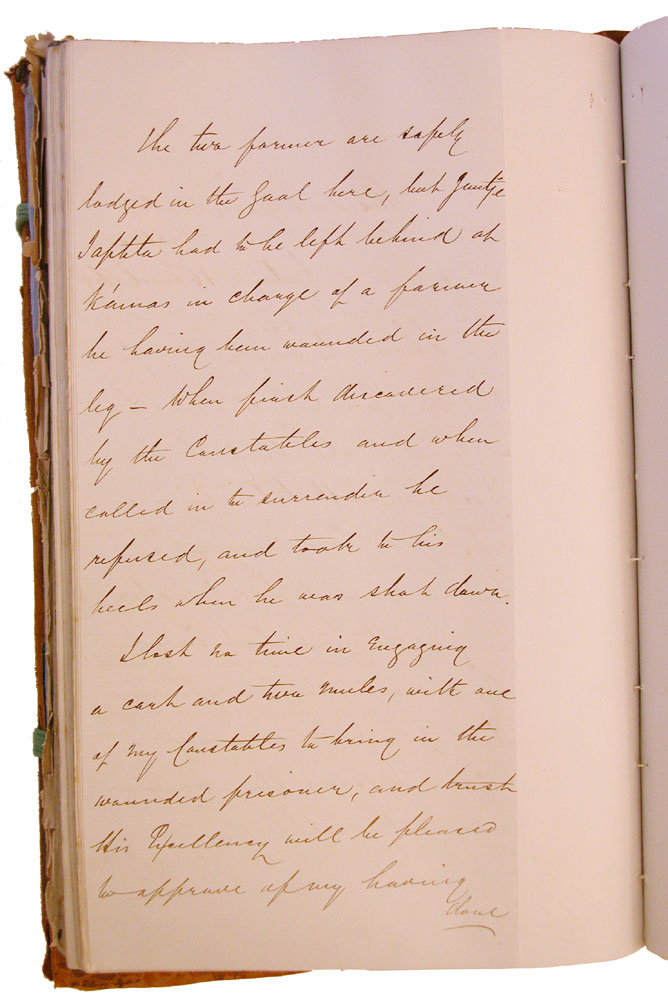 The two former are safely
lodged in the Gaol here, but Jantje
Japhta had to be left behind at
Kamas in charge of a farmer
he having been wounded in the
leg — When first discovered
by the Constables and when
called in to surrender he
refused, and took to his
heels when he was shot down.
I lost no time in Engaging
a cart and two mules, with one
of my Constables to bring in the
wounded prisoner, and trust
His Excellency will be pleased
to approve of my having
done